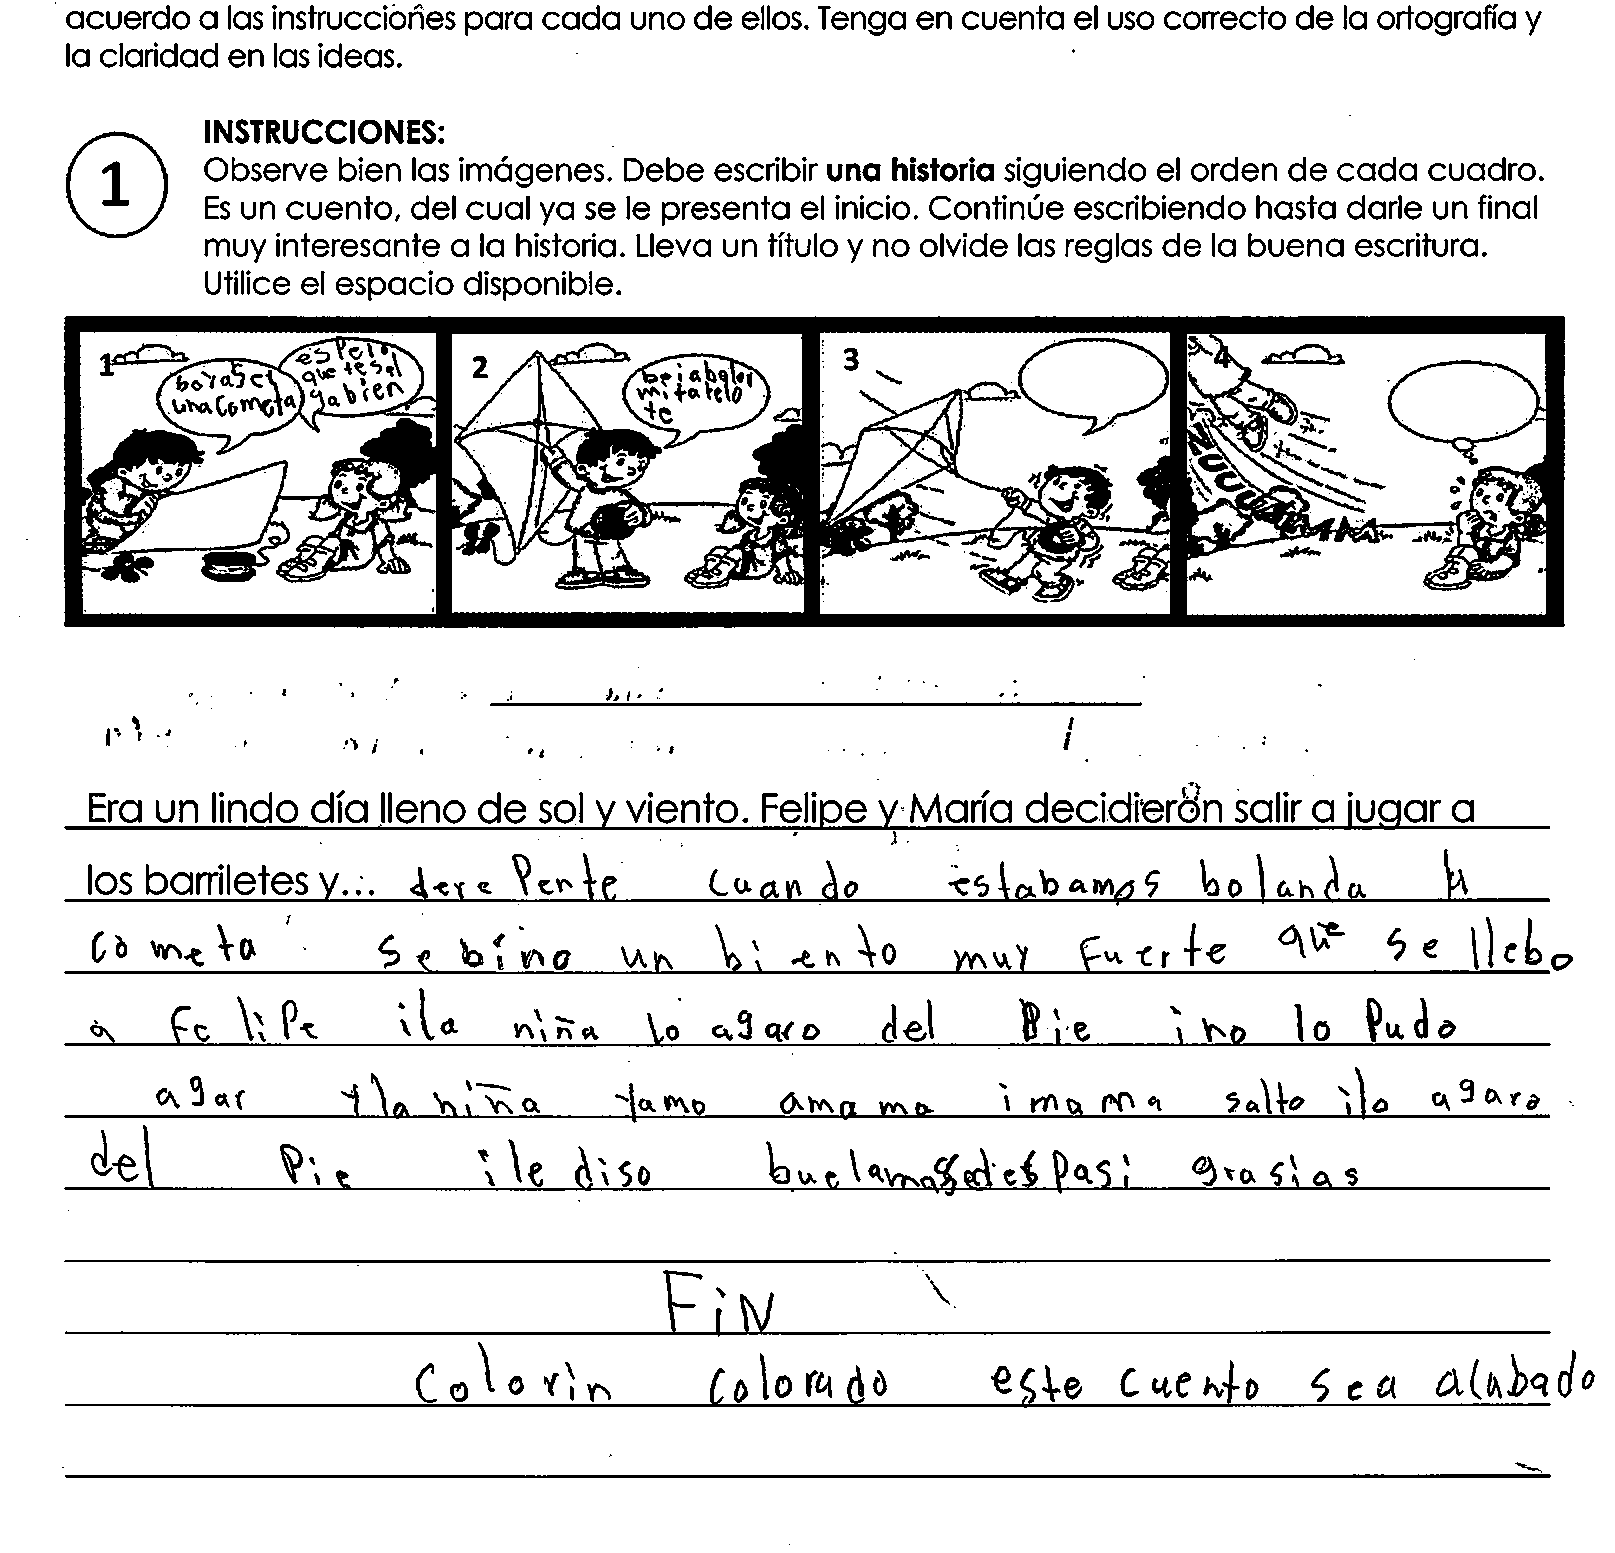 acuerdo a las instrucciones para cada uno de ellos. Tenga en cuenta el uso correcto de la ortografía y
la claridad en las ideas.
1
INSTRUCCIONES:
Observe bien las imágenes. Debe escribir una historia siguiendo el orden de cada cuadro.
Es un cuento, del cual ya se le presenta el inicio. Continúe escribiendo hasta darle un final
muy interesante a la historia. Lleva un título y no olvide las reglas de la buena escritura.
Utilice el espacio disponible.
1
boyaser
una cometa
espero
que te sal
ga bien
2
mi
te
3
4
ZUUUU
Era un lindo día lleno de sol y viento. Felipe y María decidieron salir a jugar a
los barriletes y... derepente cuando estabamos bolanda
cometa se bino un biento muy fuerte que se llebo
a Felipe ila niña lo agaro del Pie ino lo Pudo
agar yla niña yamo amama imama salto ilo agaro
del Pie ile diso grasias
FiN
Colorin colorado este cuento sea acabado